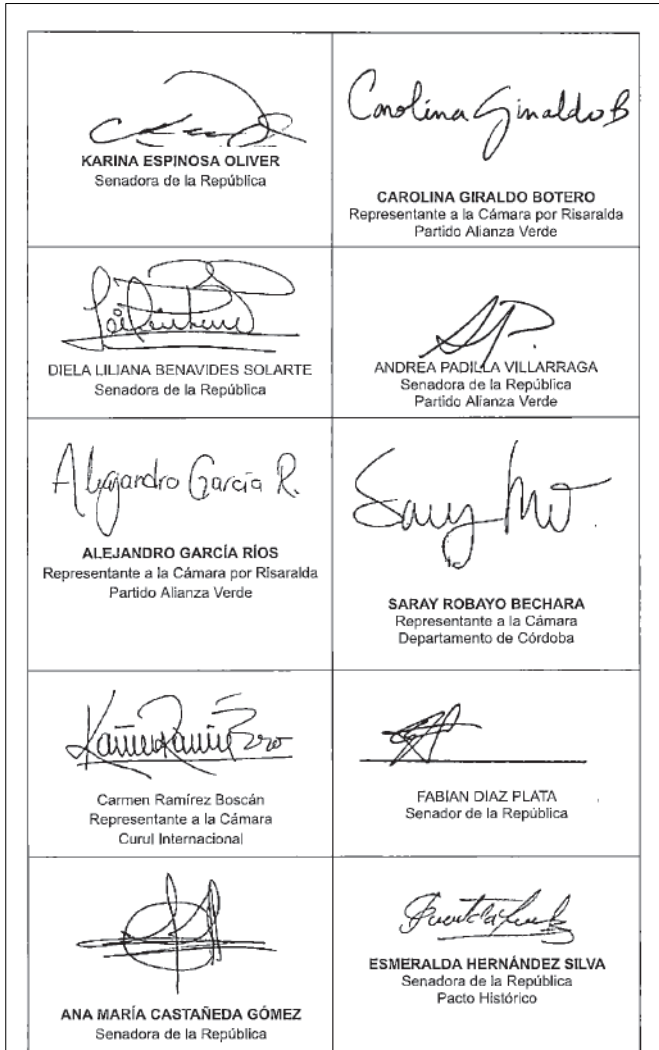 KARINA ESPINOSA OLIVER
Senadora de la República
Carolina Giraldo B
CAROLINA GIRALDO BOTERO
Representante a la Cámara por Risaralda
Partido Alianza Verde
DIELA LILIANA BENAVIDES SOLARTE
Senadora de la República
ANDREA PADILLA VILLARRAGA
Senadora de la República
Partido Alianza Verde
Alejandro García R.
ALEJANDRO GARCÍA RÍOS
Representante a la Cámara por Risaralda
Partido Alianza Verde
SARAY ROBAYO BECHARA
Representante a la Cámara
Departamento de Córdoba
Carmen Ramírez Boscán
Representante a la Cámara
Curul Internacional
FABIAN DIAZ PLATA
Senador de la República
ANA MARÍA CASTAÑEDA GÓMEZ
Senadora de la República
ESMERALDA HERNÁNDEZ SILVA
Senadora de la República
Pacto Histórico